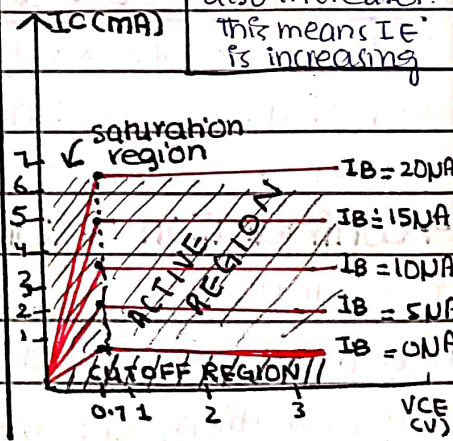 IC(MA)
also increases.
this means IE
is increasing
saturation
region
7
6
5
4
3
2
1
IB = 20µA
IB = 15µA
IB = 10µA
IB = 5µA
IB = 0µA
ACTIVE
REGION
CUTOFF REGION
0.7 1 2 3
VCE
(V)